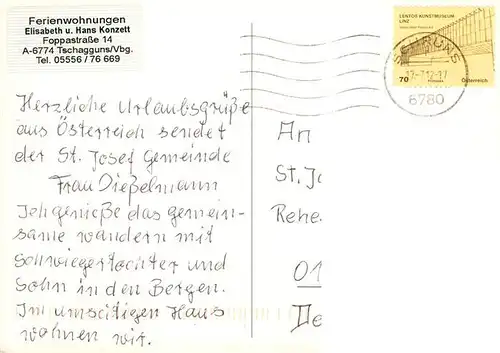 Ferienwohnungen
Elisabeth u. Hans Konzett
Foppastraße 14
A-6774 Tschagguns/Vbg.
Tel. 05556 / 76 669
LENTOS KUNSTMUSEUM
LINZ
70
Österreich
SCHRUNS
6780
Herzliche Urlaubsgrüße
aus Österreich sendet
der St. Josef Gemeinde
Frau Dießelmann
Ich genieße das gemein-
same wandern mit
Schwiegertochter und
Sohn in den Bergen.
Im umseitigen Haus
wohnen wir.
An
St. Jo
Rehe
01
De